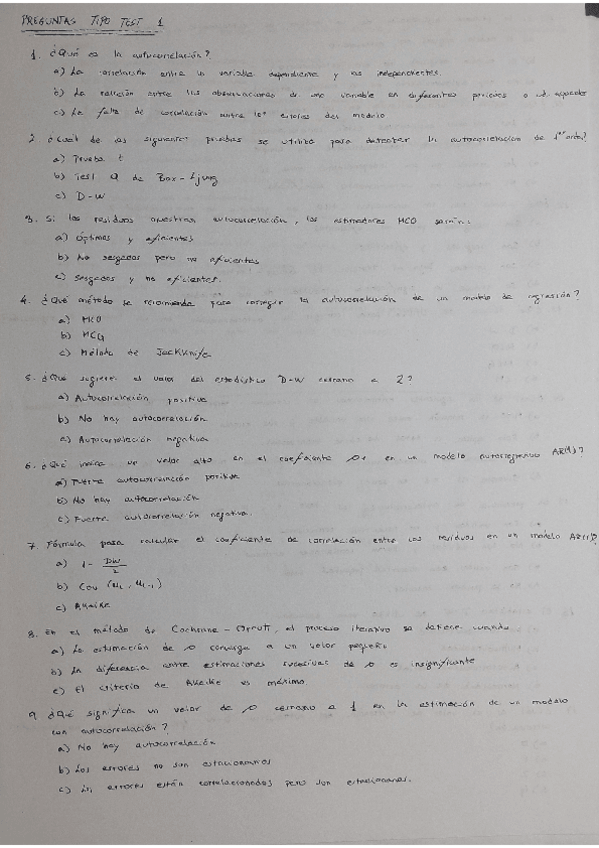 PREGUNTAS TIPO TEST 1
1. ¿Qué es la autocorrelación?
a) La correlación entre la variable dependiente y las independientes.
b) La relación entre las observaciones de una variable en diferentes periodos o ud. espaciales
c) La falta de correlación entre los errores del modelo
2. ¿Cuál de las siguientes pruebas se utiliza para detectar la autocorrelación de 1er orden?
a) Prueba t
b) Test Q de Box-Ljung
c) D-W
3. Si los residuos muestran autocorrelación, los estimadores MCO serán:
a) Óptimos y eficientes
b) No sesgados pero no eficientes
c) Sesgados y no eficientes.
4. ¿Qué método se recomienda para corregir la autocorrelación de un modelo de regresión?
a) MCO
b) MCG
c) Método de JackKnife
5. ¿Qué sugiere el valor del estadístico D-W cercano a 2?
a) Autocorrelación positiva
b) No hay autocorrelación
c) Autocorrelación negativa
6. ¿Qué indica un valor alto en el coeficiente ρ en un modelo autorregresivo AR(1)?
a) Fuerte autocorrelación positiva
b) No hay autocorrelación
c) Fuerte autocorrelación negativa.
7. Fórmula para calcular el coeficiente de correlación entre los residuos en un modelo AR(1)?
a) 1 - DW/2
b) Cov (ut, ut-1)
c) Akaike
8. En el método de Cochrane-Orcutt, el proceso iterativo se detiene cuando
a) La estimación de ρ converge a un valor pequeño
b) La diferencia entre estimaciones sucesivas de ρ es insignificante
c) El criterio de Akaike es máximo
9. ¿Qué significa un valor de ρ cercano a 1 en la estimación de un modelo
con autocorrelación?
a) No hay autocorrelación
b) Los errores no son estacionarios
c) Los errores están correlacionados pero son estacionarios.